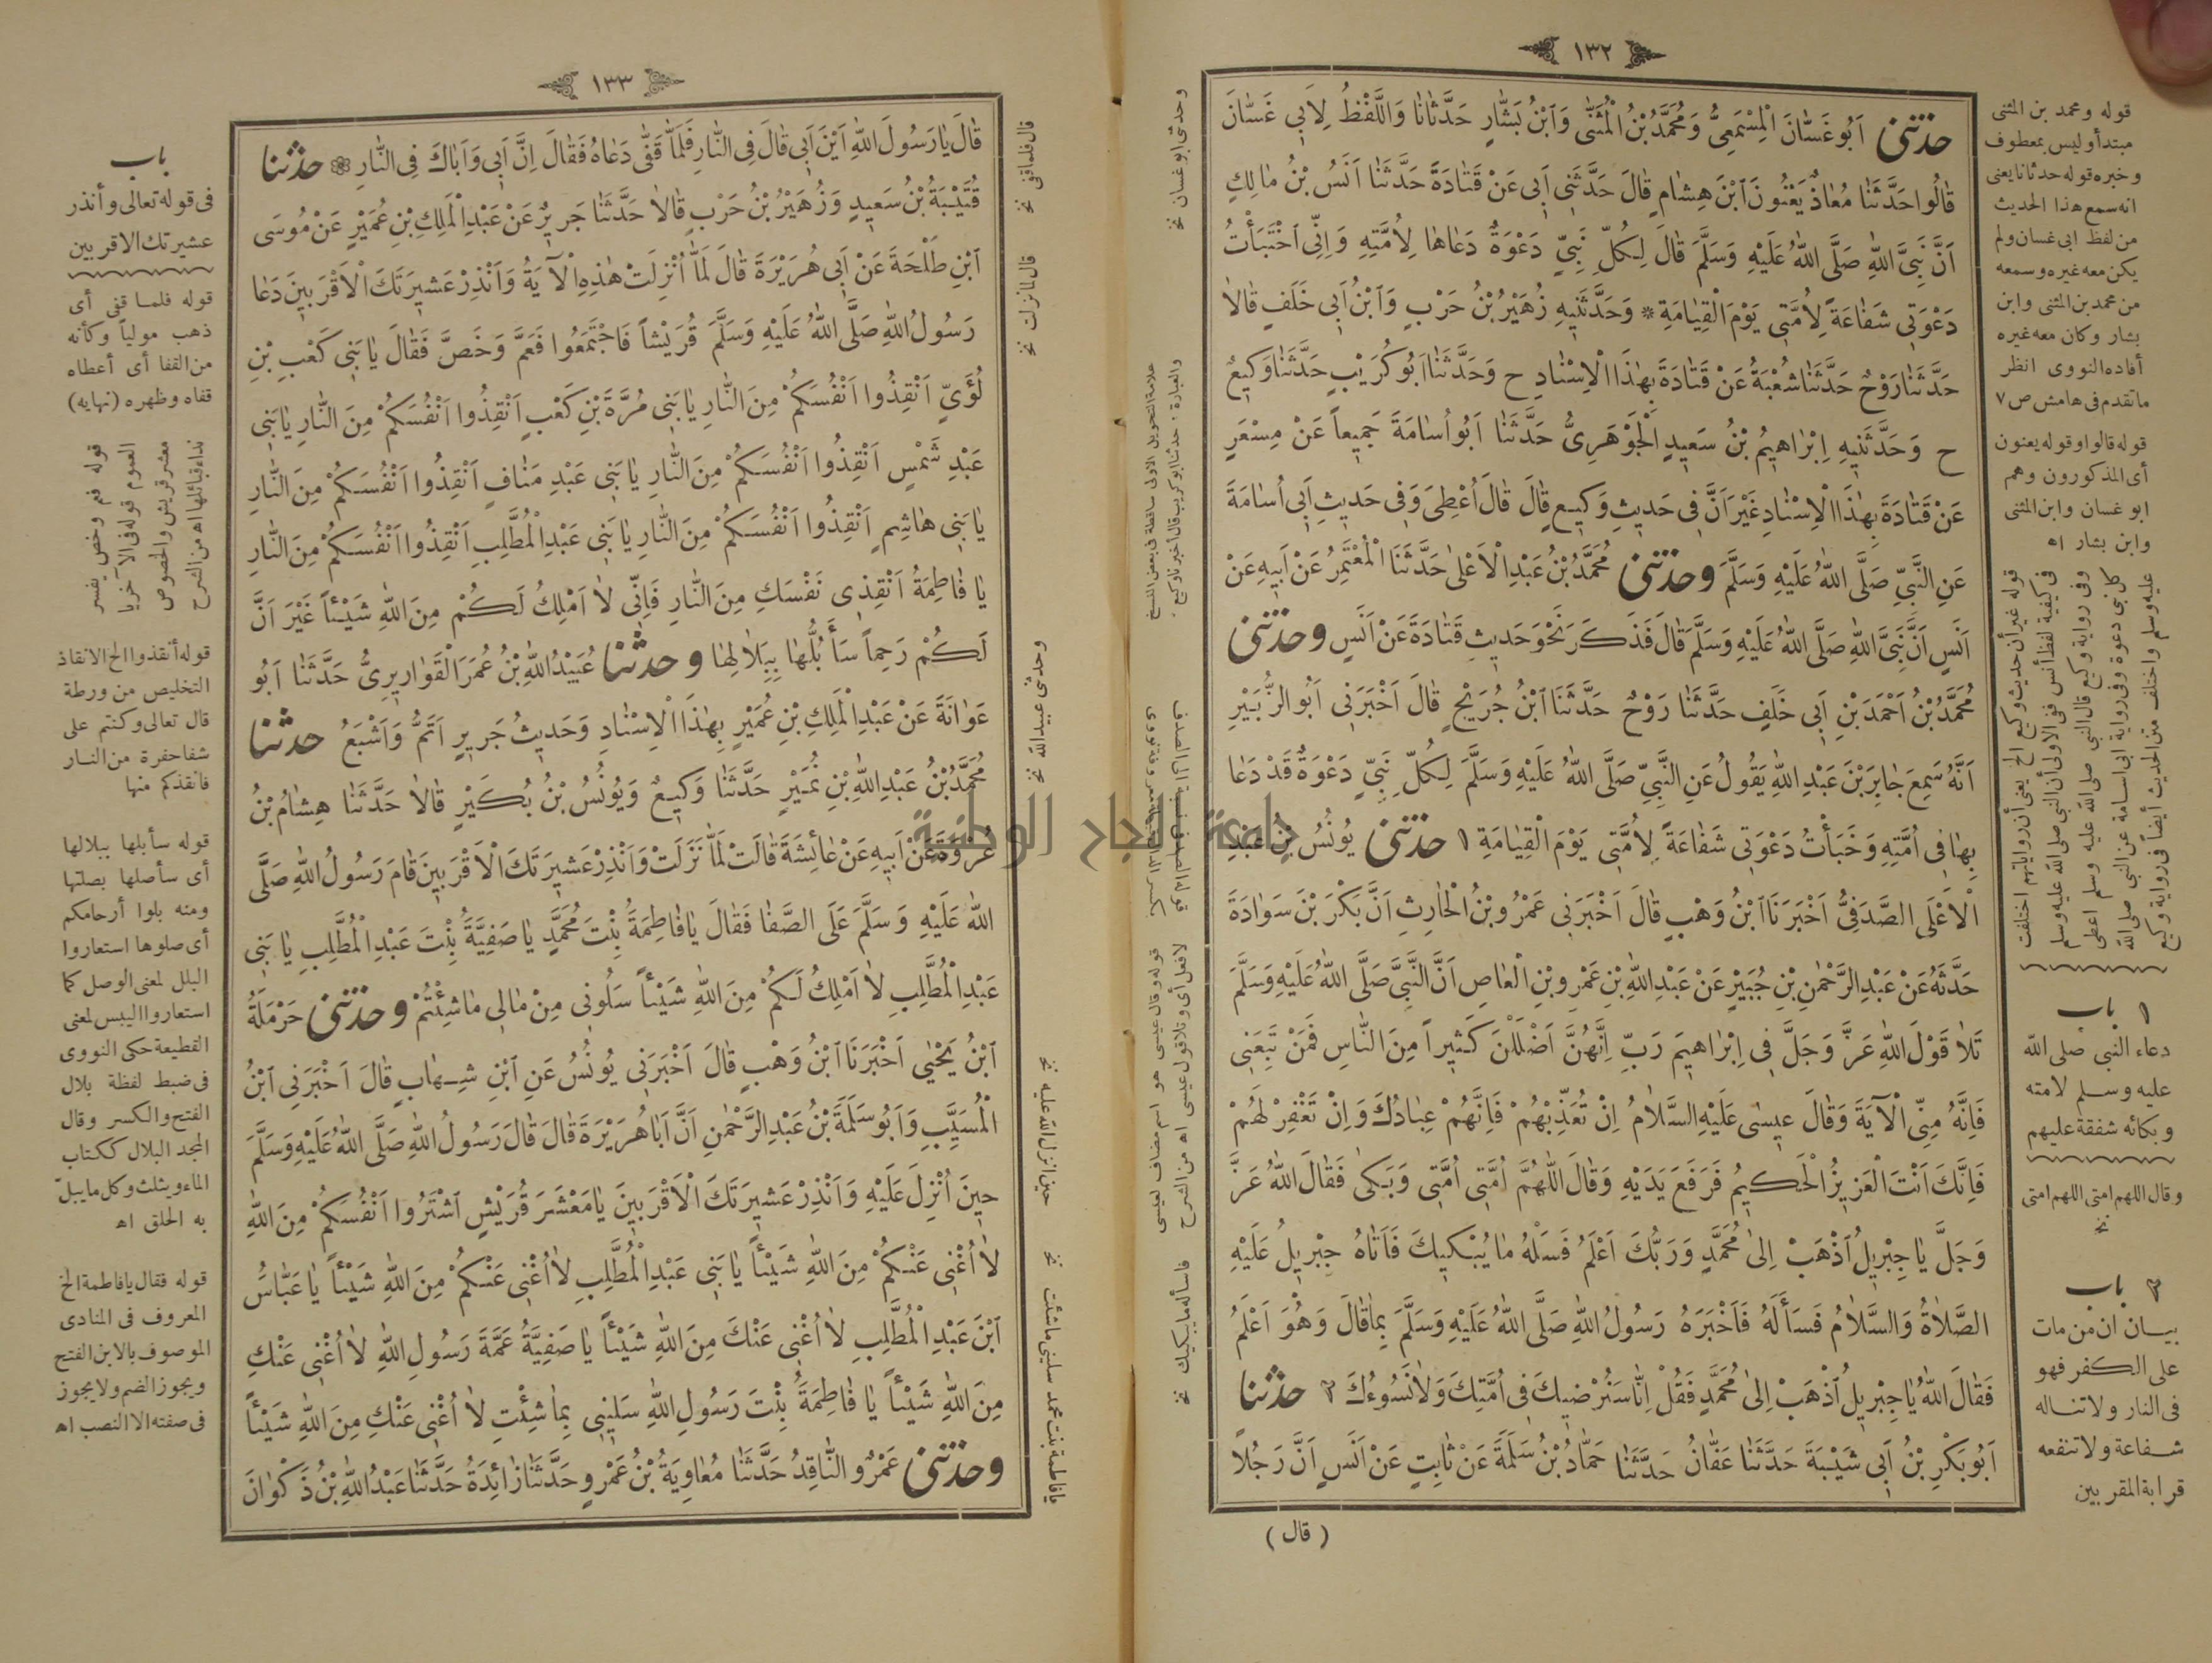 ١٣٢
حدثنى اَبُوغَسَّانَ الْمِسْمَعِىُّ وَمُحَمَّدُ بْنُ الْمُثَنّٰى وَابْنُ بَشَّارٍ حَدَّثَانَا وَاللَّفْظُ لِاَبِى غَسَّانَ
قَالُوا حَدَّثَنَا مُعَاذٌ يَعْنُونَ ابْنَ هِشَامٍ قَالَ حَدَّثَنِى اَبِى عَنْ قَتَادَةَ حَدَّثَنَا اَنَسُ بْنُ مَالِكٍ
اَنَّ نَبِىَّ اللهِ صَلَّى اللهُ عَلَيْهِ وَسَلَّمَ قَالَ لِكُلِّ نَبِىٍّ دَعْوَةٌ دَعَاهَا لِاُمَّتِهِ وَاِنِّى اخْتَبَأْتُ
دَعْوَتِى شَفَاعَةً لِاُمَّتِى يَوْمَ الْقِيَامَةِ * وَحَدَّثَنِيهِ زُهَيْرُ بْنُ حَرْبٍ وَابْنُ اَبِى خَلَفٍ قَالَا
حَدَّثَنَا رَوْحٌ حَدَّثَنَا شُعْبَةُ عَنْ قَتَادَةَ بِهٰذَا الْاِسْنَادِ ح وَحَدَّثَنَا اَبُو كُرَيْبٍ حَدَّثَنَا وَكِيعٌ
ح وَحَدَّثَنِيهِ اِبْرَاهِيمُ بْنُ سَعِيدٍ الْجَوْهَرِىُّ حَدَّثَنَا اَبُو اُسَامَةَ جَمِيعاً عَنْ مِسْعَرٍ
عَنْ قَتَادَةَ بِهٰذَا الْاِسْنَادِ غَيْرَ اَنَّ فِى حَدِيثِ وَكِيعٍ قَالَ قَالَ اُعْطِىَ وَفِى حَدِيثِ اَبِى اُسَامَةَ
عَنِ النَّبِىِّ صَلَّى اللهُ عَلَيْهِ وَسَلَّمَ وحدثنى مُحَمَّدُ بْنُ عَبْدِ الْاَعْلٰى حَدَّثَنَا الْمُعْتَمِرُ عَنْ اَبِيهِ عَنْ
اَنَسٍ اَنَّ نَبِىَّ اللهِ صَلَّى اللهُ عَلَيْهِ وَسَلَّمَ قَالَ فَذَكَرَ نَحْوَ حَدِيثِ قَتَادَةَ عَنْ اَنَسٍ وحدثنى
مُحَمَّدُ بْنُ اَحْمَدَ بْنِ اَبِى خَلَفٍ حَدَّثَنَا رَوْحٌ حَدَّثَنَا ابْنُ جُرَيْجٍ قَالَ اَخْبَرَنِى اَبُو الزُّبَيْرِ
اَنَّهُ سَمِعَ جَابِرَ بْنَ عَبْدِ اللهِ يَقُولُ عَنِ النَّبِىِّ صَلَّى اللهُ عَلَيْهِ وَسَلَّمَ لِكُلِّ نَبِىٍّ دَعْوَةٌ قَدْ دَعَا
بِهَا فِى اُمَّتِهِ وَخَبَأْتُ دَعْوَتِى شَفَاعَةً لِاُمَّتِى يَوْمَ الْقِيَامَةِ ١ حدثنى يُونُسُ بْنُ عَبْدِ
الْاَعْلَى الصَّدَفِىُّ اَخْبَرَنَا ابْنُ وَهْبٍ قَالَ اَخْبَرَنِى عَمْرُو بْنُ الْحَارِثِ اَنَّ بَكْرَ بْنَ سَوَادَةَ
حَدَّثَهُ عَنْ عَبْدِ الرَّحْمٰنِ بْنِ جُبَيْرٍ عَنْ عَبْدِ اللهِ بْنِ عَمْرِو بْنِ الْعَاصِ اَنَّ النَّبِىَّ صَلَّى اللهُ عَلَيْهِ وَسَلَّمَ
تَلَا قَوْلَ اللهِ عَزَّ وَجَلَّ فِى اِبْرَاهِيمَ رَبِّ اِنَّهُنَّ اَضْلَلْنَ كَثِيراً مِنَ النَّاسِ فَمَنْ تَبِعَنِى
فَاِنَّهُ مِنِّى الْآيَةَ وَقَالَ عِيسٰى عَلَيْهِ السَّلَامُ اِنْ تُعَذِّبْهُمْ فَاِنَّهُمْ عِبَادُكَ وَاِنْ تَغْفِرْ لَهُمْ
فَاِنَّكَ اَنْتَ الْعَزِيزُ الْحَكِيمُ فَرَفَعَ يَدَيْهِ وَقَالَ اللّٰهُمَّ اُمَّتِى اُمَّتِى وَبَكٰى فَقَالَ اللهُ عَزَّ
وَجَلَّ يَا جِبْرِيلُ اذْهَبْ اِلٰى مُحَمَّدٍ وَرَبُّكَ اَعْلَمُ فَسَلْهُ مَا يُبْكِيكَ فَاَتَاهُ جِبْرِيلُ عَلَيْهِ
الصَّلَاةُ وَالسَّلَامُ فَسَأَلَهُ فَاَخْبَرَهُ رَسُولُ اللهِ صَلَّى اللهُ عَلَيْهِ وَسَلَّمَ بِمَا قَالَ وَهُوَ اَعْلَمُ
فَقَالَ اللهُ يَا جِبْرِيلُ اذْهَبْ اِلٰى مُحَمَّدٍ فَقُلْ اِنَّا سَنُرْضِيكَ فِى اُمَّتِكَ وَلَا نَسُوءُكَ ٢ حدثنا
اَبُو بَكْرِ بْنُ اَبِى شَيْبَةَ حَدَّثَنَا عَفَّانُ حَدَّثَنَا حَمَّادُ بْنُ سَلَمَةَ عَنْ ثَابِتٍ عَنْ اَنَسٍ اَنَّ رَجُلاً
( قال )
قوله ومحمد بن المثنى
مبتدأ وليس بمعطوف
وخبره قوله حدثانا يعنى
انه سمع هذا الحديث
من لفظ ابى غسان ولم
يكن معه غيره وسمعه
من محمد بن المثنى وابن
بشار وكان معه غيره
أفاده النووى انظر
ماتقدم فى هامش ص ٧
قوله قالوا وقوله يعنون
أى المذكورون وهم
ابو غسان وابن المثنى
وابن بشار اه
قوله غير أن حديث وكيع الخ يعنى أن رواياتهم اختلفت
فى كيفية لفظ أنس ففى الاولى أن النبى صلى الله عليه وسلم
وفى رواية وكيع قال النبى صلى الله عليه وسلم اعطى
كل نبى دعوة وفى رواية ابى اسامة عن النبى صلى الله
عليه وسلم واختلف متن الحديث أيضاً فى رواية وكيع
١ باب
دعاء النبى صلى الله
عليه وسلم لامته
وبكائه شفقة عليهم
وقال اللهم امتى اللهم امتى
نخ
٢ باب
بيان ان من مات
على الكفر فهو
فى النار ولا تناله
شفاعة ولا تنفعه
قرابة المقربين
وحدثنى ابو غسان نخ
والعبارة : حدثنا ابو كريب قال أخبرنا وكيع .
علامة التحويل الاولى ساقطة فى بعض النسخ
قوله وقال عيسى هو اسم مضاف لعيسى
لافعل أى وتلا قول عيسى اه من الشرح
فاسأله ما يبكيك نخ
جامعة النجاح الوطنية
١٣٣
قَالَ يَا رَسُولَ اللهِ اَيْنَ اَبِى قَالَ فِى النَّارِ فَلَمَّا قَفّٰى دَعَاهُ فَقَالَ اِنَّ اَبِى وَاَبَاكَ فِى النَّارِ * حدثنا
قُتَيْبَةُ بْنُ سَعِيدٍ وَزُهَيْرُ بْنُ حَرْبٍ قَالَا حَدَّثَنَا جَرِيرٌ عَنْ عَبْدِ الْمَلِكِ بْنِ عُمَيْرٍ عَنْ مُوسَى
ابْنِ طَلْحَةَ عَنْ اَبِى هُرَيْرَةَ قَالَ لَمَّا اُنْزِلَتْ هٰذِهِ الْآيَةُ وَاَنْذِرْ عَشِيرَتَكَ الْاَقْرَبِينَ دَعَا
رَسُولُ اللهِ صَلَّى اللهُ عَلَيْهِ وَسَلَّمَ قُرَيْشاً فَاجْتَمَعُوا فَعَمَّ وَخَصَّ فَقَالَ يَا بَنِى كَعْبِ بْنِ
لُؤَىٍّ اَنْقِذُوا اَنْفُسَكُمْ مِنَ النَّارِ يَا بَنِى مُرَّةَ بْنِ كَعْبٍ اَنْقِذُوا اَنْفُسَكُمْ مِنَ النَّارِ يَا بَنِى
عَبْدِ شَمْسٍ اَنْقِذُوا اَنْفُسَكُمْ مِنَ النَّارِ يَا بَنِى عَبْدِ مَنَافٍ اَنْقِذُوا اَنْفُسَكُمْ مِنَ النَّارِ
يَا بَنِى هَاشِمٍ اَنْقِذُوا اَنْفُسَكُمْ مِنَ النَّارِ يَا بَنِى عَبْدِ الْمُطَّلِبِ اَنْقِذُوا اَنْفُسَكُمْ مِنَ النَّارِ
يَا فَاطِمَةُ اَنْقِذِى نَفْسَكِ مِنَ النَّارِ فَاِنِّى لَا اَمْلِكُ لَكُمْ مِنَ اللهِ شَيْئاً غَيْرَ اَنَّ
لَكُمْ رَحِماً سَأَبُلُّهَا بِبِلَالِهَا وحدثنا عُبَيْدُ اللهِ بْنُ عُمَرَ الْقَوَارِيرِىُّ حَدَّثَنَا اَبُو
عَوَانَةَ عَنْ عَبْدِ الْمَلِكِ بْنِ عُمَيْرٍ بِهٰذَا الْاِسْنَادِ وَحَدِيثُ جَرِيرٍ اَتَمُّ وَاَشْبَعُ حدثنا
مُحَمَّدُ بْنُ عَبْدِ اللهِ بْنِ نُمَيْرٍ حَدَّثَنَا وَكِيعٌ وَيُونُسُ بْنُ بُكَيْرٍ قَالَا حَدَّثَنَا هِشَامُ بْنُ
عُرْوَةَ عَنْ اَبِيهِ عَنْ عَائِشَةَ قَالَتْ لَمَّا نَزَلَتْ وَاَنْذِرْ عَشِيرَتَكَ الْاَقْرَبِينَ قَامَ رَسُولُ اللهِ صَلَّى
اللهُ عَلَيْهِ وَسَلَّمَ عَلَى الصَّفَا فَقَالَ يَا فَاطِمَةُ بِنْتَ مُحَمَّدٍ يَا صَفِيَّةُ بِنْتَ عَبْدِ الْمُطَّلِبِ يَا بَنِى
عَبْدِ الْمُطَّلِبِ لَا اَمْلِكُ لَكُمْ مِنَ اللهِ شَيْئاً سَلُونِى مِنْ مَالِى مَا شِئْتُمْ وحدثنى حَرْمَلَةُ
ابْنُ يَحْيٰى اَخْبَرَنَا ابْنُ وَهْبٍ قَالَ اَخْبَرَنِى يُونُسُ عَنِ ابْنِ شِهَابٍ قَالَ اَخْبَرَنِى ابْنُ
الْمُسَيَّبِ وَاَبُو سَلَمَةَ بْنُ عَبْدِ الرَّحْمٰنِ اَنَّ اَبَا هُرَيْرَةَ قَالَ قَالَ رَسُولُ اللهِ صَلَّى اللهُ عَلَيْهِ وَسَلَّمَ
حِينَ اُنْزِلَ عَلَيْهِ وَاَنْذِرْ عَشِيرَتَكَ الْاَقْرَبِينَ يَا مَعْشَرَ قُرَيْشٍ اشْتَرُوا اَنْفُسَكُمْ مِنَ اللهِ
لَا اُغْنِى عَنْكُمْ مِنَ اللهِ شَيْئاً يَا بَنِى عَبْدِ الْمُطَّلِبِ لَا اُغْنِى عَنْكُمْ مِنَ اللهِ شَيْئاً يَا عَبَّاسُ
ابْنَ عَبْدِ الْمُطَّلِبِ لَا اُغْنِى عَنْكَ مِنَ اللهِ شَيْئاً يَا صَفِيَّةُ عَمَّةَ رَسُولِ اللهِ لَا اُغْنِى عَنْكِ
مِنَ اللهِ شَيْئاً يَا فَاطِمَةُ بِنْتَ رَسُولِ اللهِ سَلِينِى بِمَا شِئْتِ لَا اُغْنِى عَنْكِ مِنَ اللهِ شَيْئاً
وحدثنى عَمْرٌو النَّاقِدُ حَدَّثَنَا مُعَاوِيَةُ بْنُ عَمْرٍو حَدَّثَنَا زَائِدَةُ حَدَّثَنَا عَبْدُ اللهِ بْنُ ذَكْوَانَ
قال فلما قفى نخ
قال لما نزلت نخ
وحدثنى عبيد الله نخ
حين انزل الله عليه نخ
يا فاطمة بنت محمد سلينى ما شئت نخ
باب
فى قوله تعالى وأنذر
عشيرتك الاقربين
قوله فلما قفى أى
ذهب مولياً وكأنه
من القفا أى أعطاه
قفاه وظهره (نهايه)
قوله فعم وخص يفسر
العموم قوله فى الآخر يا
معشر قريش والخصوص
نداء قبائلها اه من الشرح
قوله أنقذوا الخ الانقاذ
التخليص من ورطة
قال تعالى وكنتم على
شفا حفرة من النار
فانقذكم منها
قوله سأبلها ببلالها
أى سأصلها بصلتها
ومنه بلوا أرحامكم
أى صلوها استعاروا
البلل لمعنى الوصل كما
استعاروا اليبس لمعنى
القطيعة حكى النووى
فى ضبط لفظة بلال
الفتح والكسر وقال
المجد البلال ككتاب
الماء ويثلث وكل ما يبلّ
به الحلق اه
قوله فقال يا فاطمة الخ
المعروف فى المنادى
الموصوف بالابن الفتح
ويجوز الضم ولا يجوز
فى صفته الا النصب اه